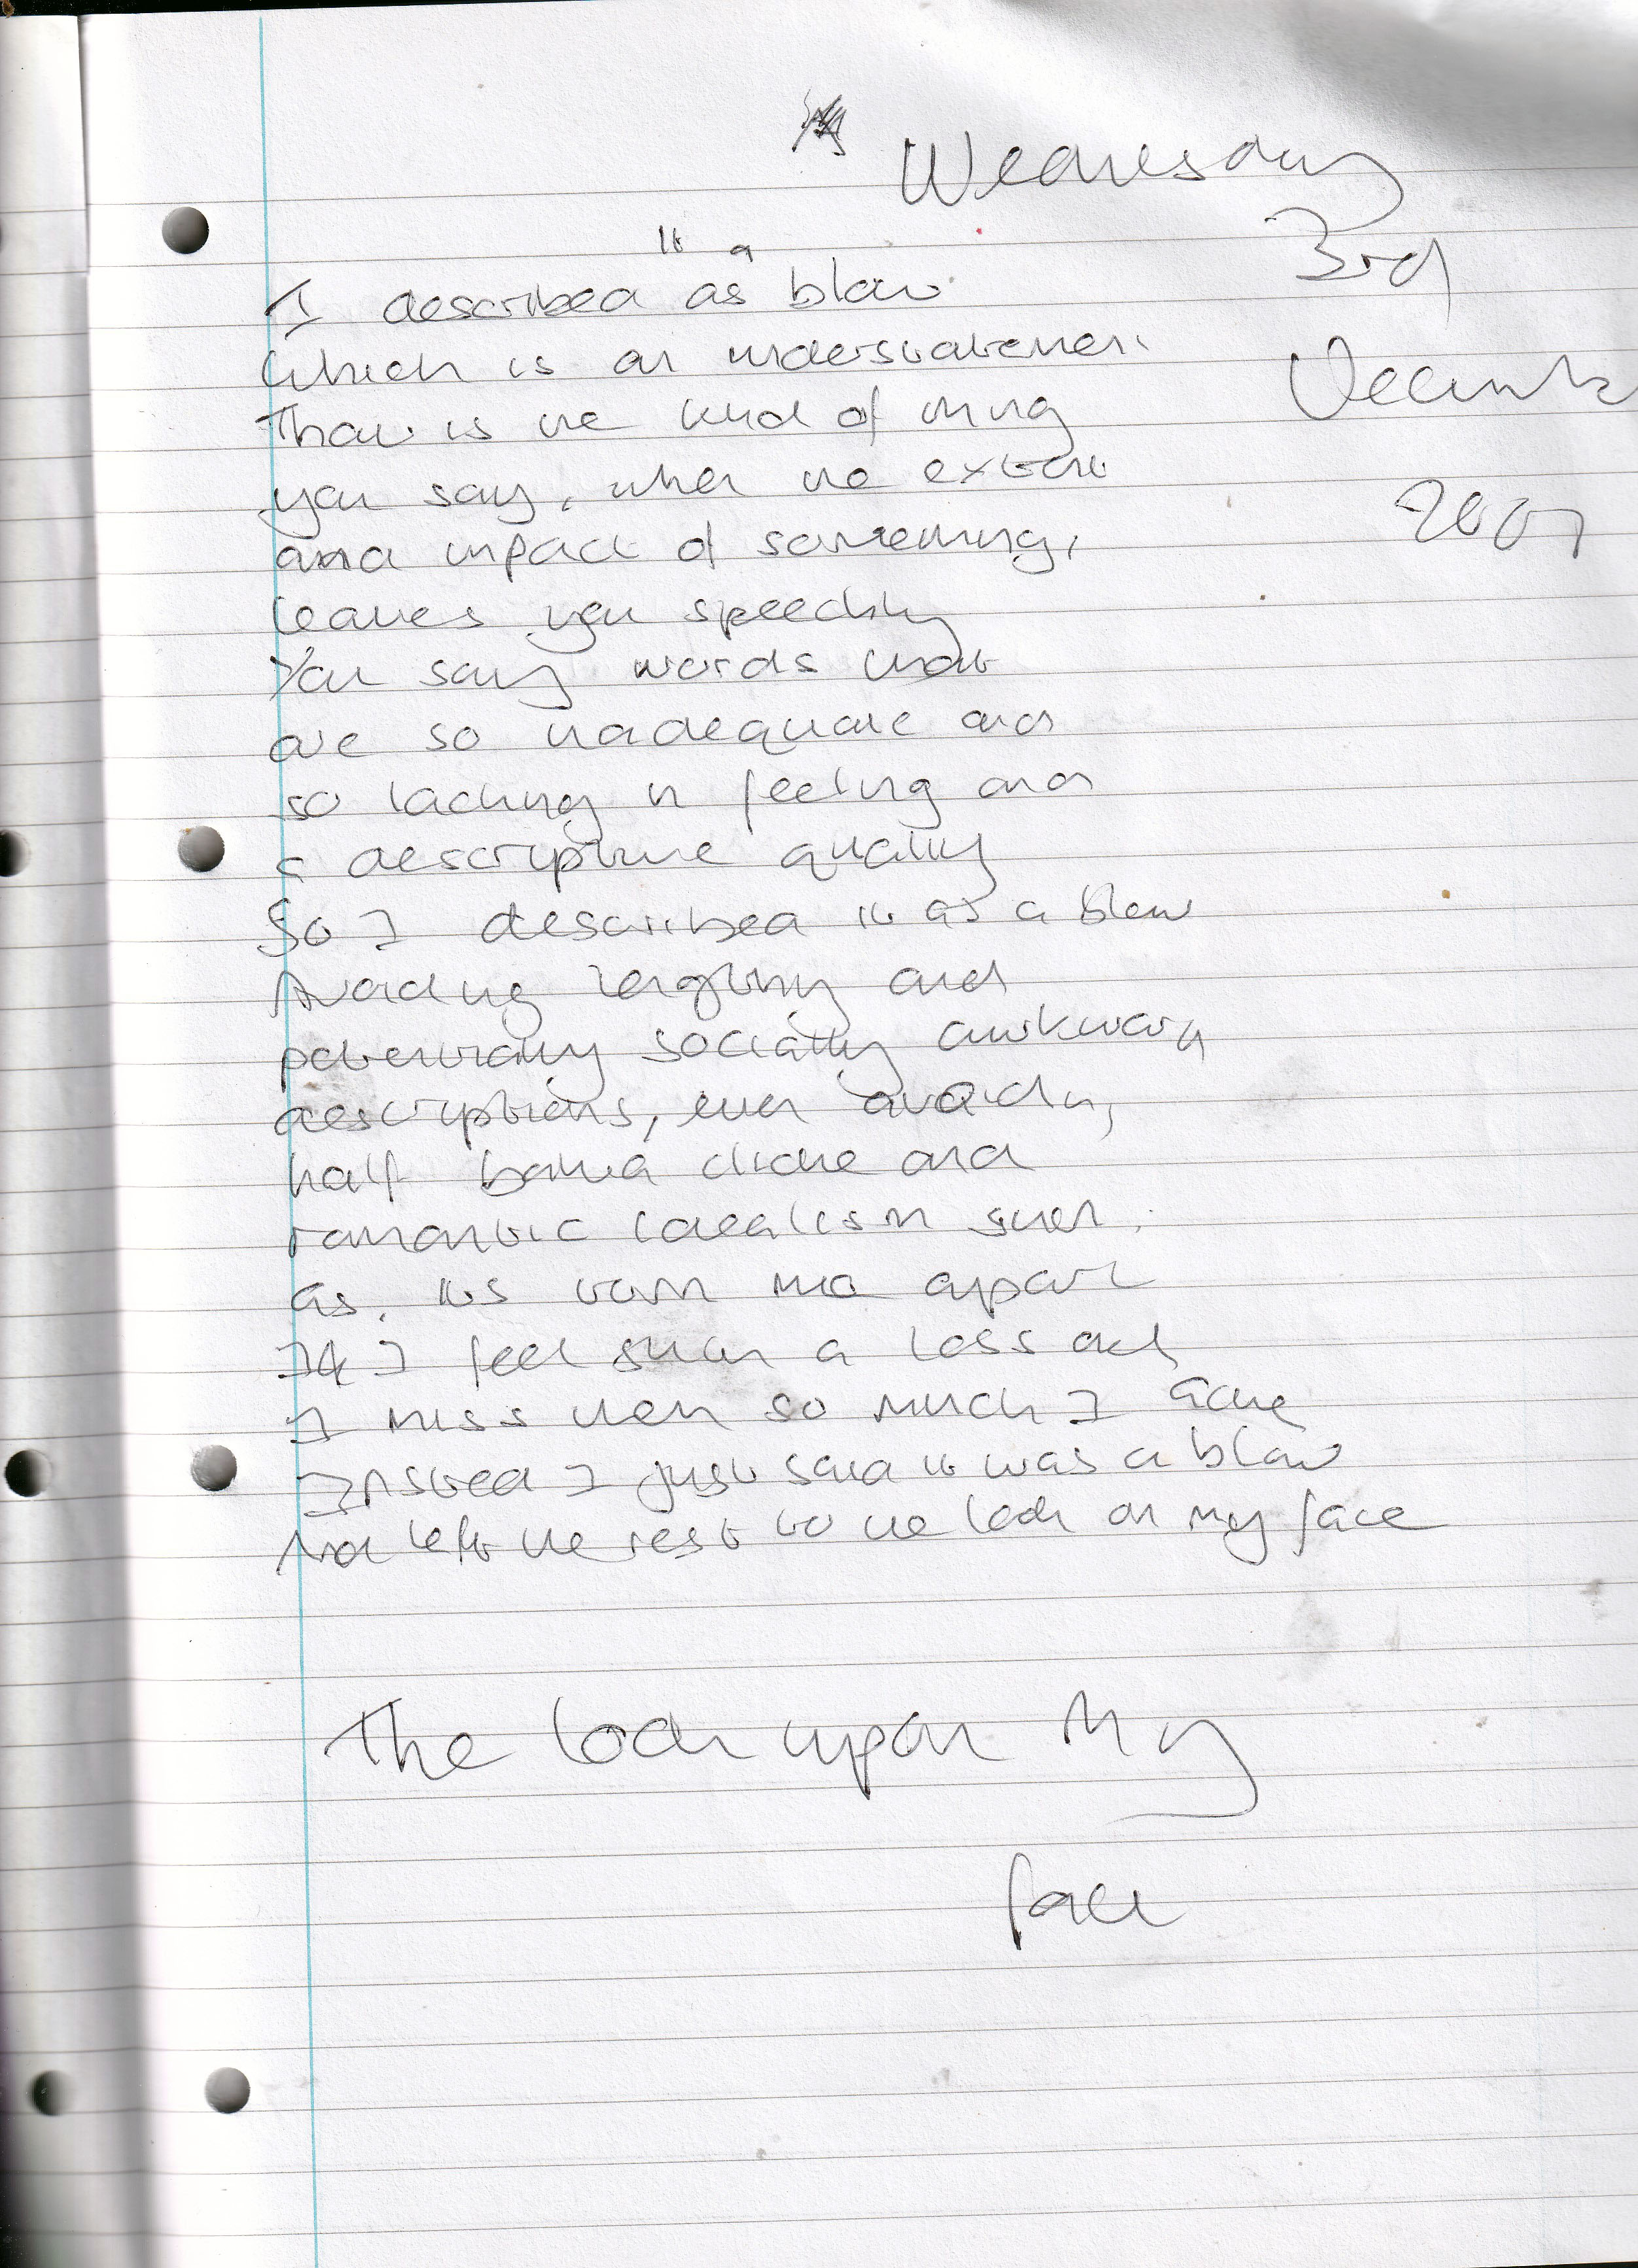 Wednesday
3rd
December
I described it as a blow
Which is an understatement
That is the kind of thing
you say, when the extent
and impact of something,
leaves you speechless
You say words that
are so inadequate and
so lacking in feeling and
descriptive quality
So I described it as a blow
Avoiding lengthy and
potentially socially awkward
descriptions, even avoiding
half baked cliche and
romantic idealism such
as. its torn me apart
I feel such a loss and
I miss them so much I ache
Instead I just said it was a blow
And left the rest to the look on my face
The look upon my
face